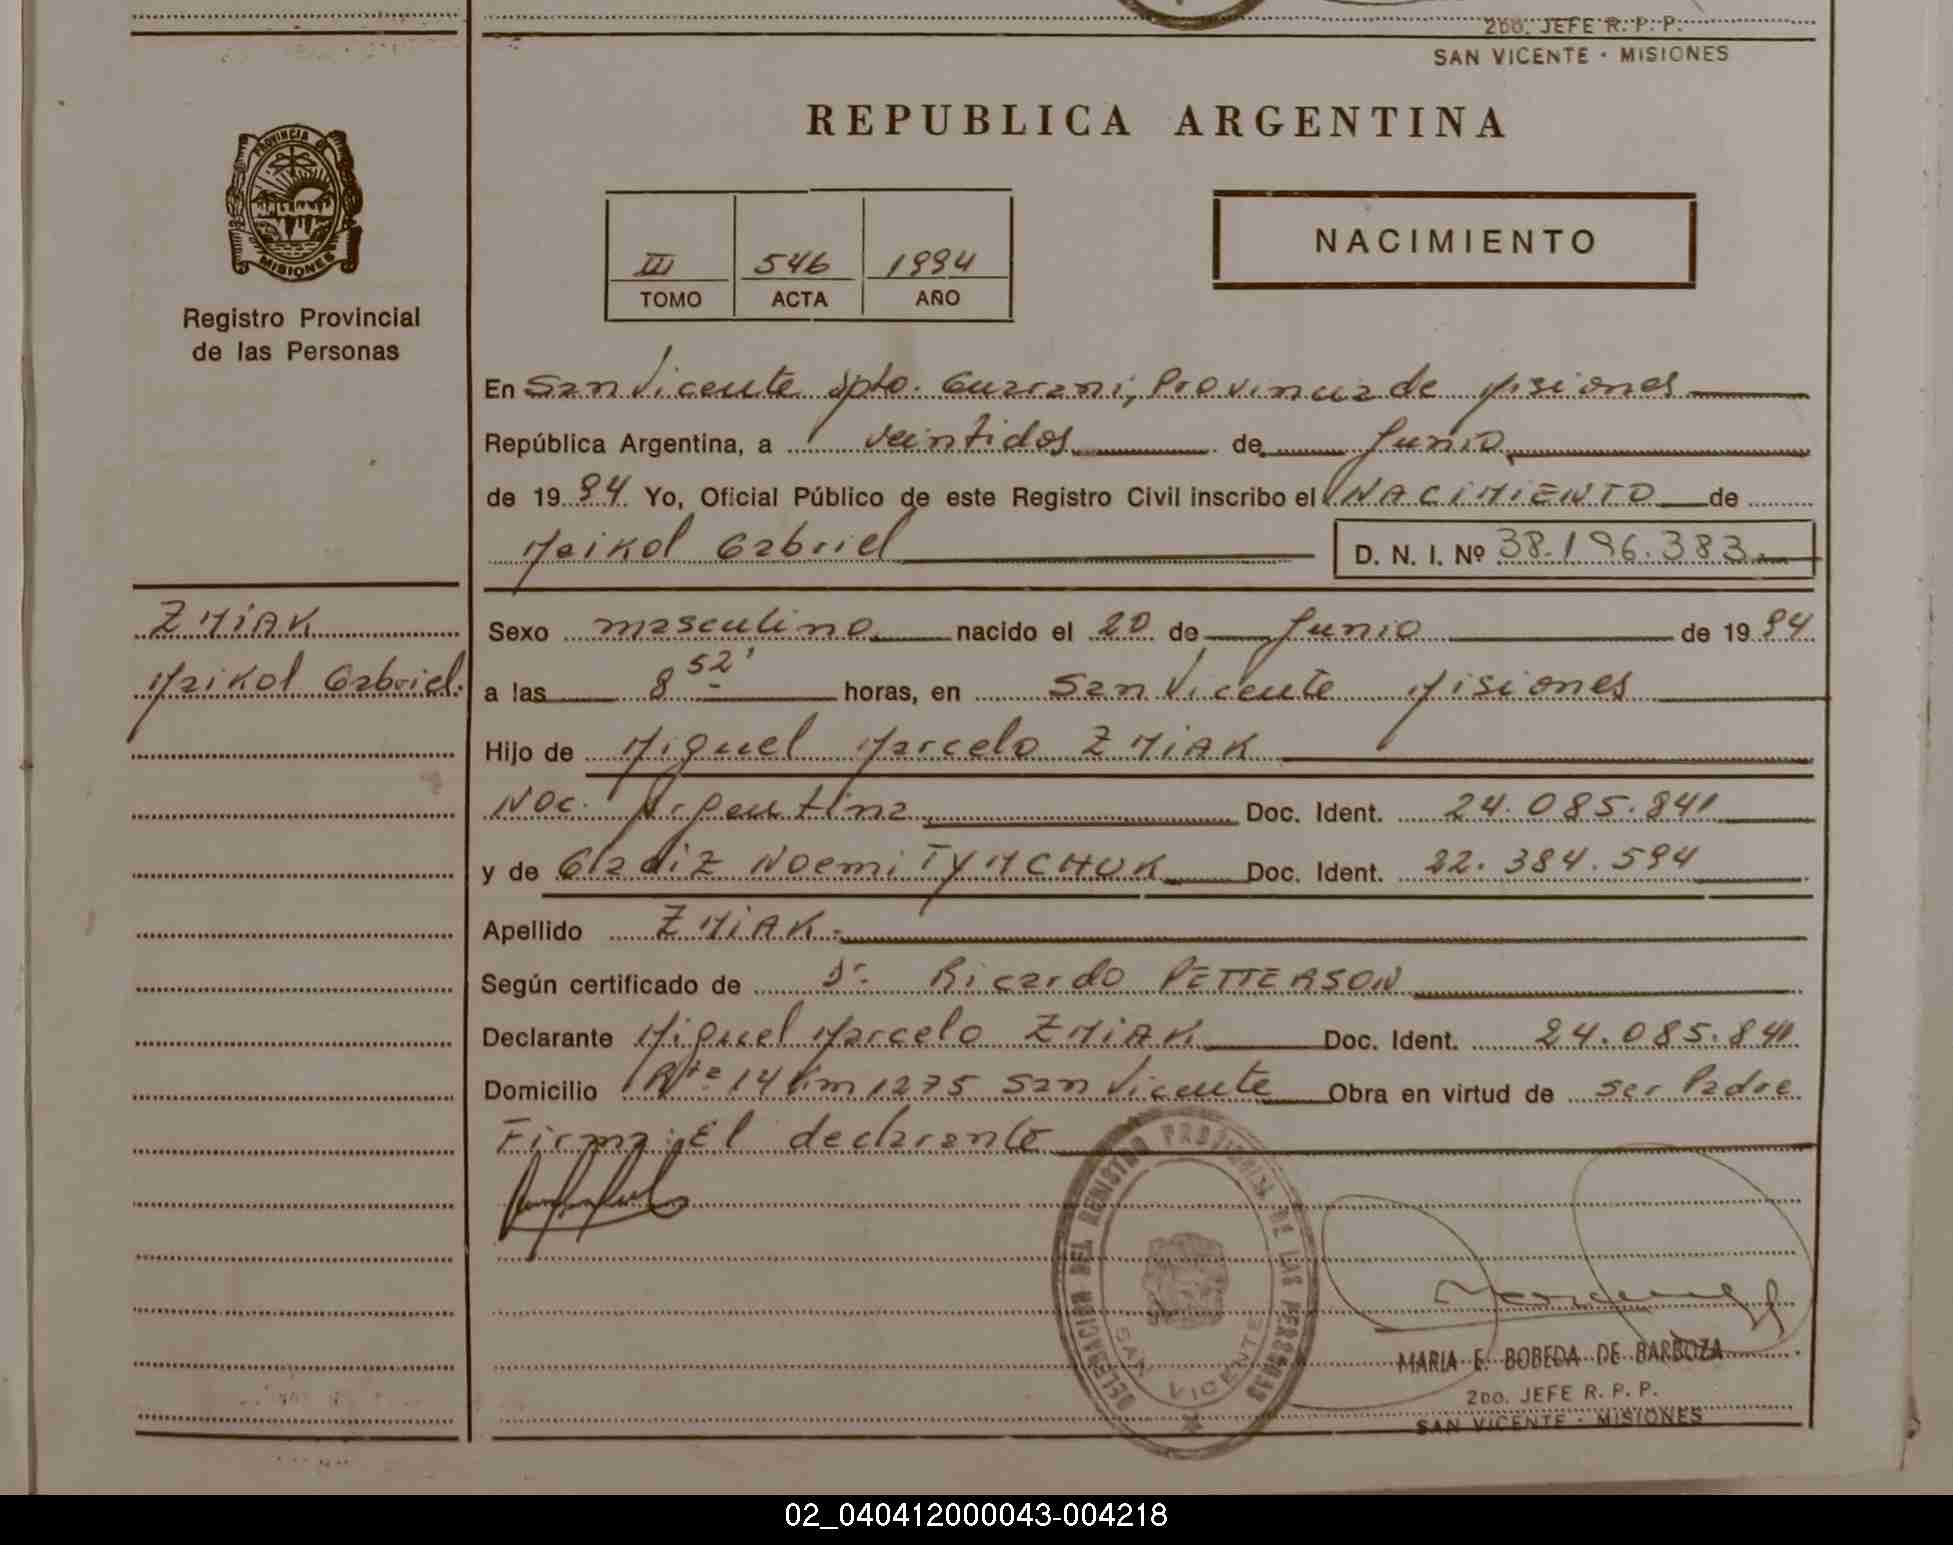 2DO. JEFE R. P. P.
SAN VICENTE - MISIONES
PROVINCIA DE
MISIONES
Registro Provincial
de las Personas
REPUBLICA ARGENTINA
III 546 1994
TOMO ACTA AÑO
NACIMIENTO
En San Vicente Dpto. Guarani, Provincia de Misiones
República Argentina, a veintidos de Junio
de 1994 Yo, Oficial Público de este Registro Civil inscribo el NACIMIENTO de
Maikol Gabriel D. N. I. Nº 38.196.383
ZMiAK
Maikol Gabriel.
Sexo masculino nacido el 20 de Junio de 1994
a las 8 52' horas, en San Vicente Misiones
Hijo de Miguel Marcelo ZMiAK
Nac. Argentina Doc. Ident. 24.085.841
y de GladiZ Noemi TYMCHUK Doc. Ident. 22.384.594
Apellido ZMiAK.-
Según certificado de Dr. Ricardo PETTERSON
Declarante Miguel Marcelo ZMiAK Doc. Ident. 24.085.841
Domicilio Rta 14 Km 1275 San Vicente Obra en virtud de ser Padre
Firma: El declarante
DELEGACION DEL REGISTRO PROVINCIAL DE LAS PERSONAS
SAN VICENTE
MARIA E. BOBEDA DE BARBOZA
2DO. JEFE R. P. P.
SAN VICENTE - MISIONES
02_040412000043-004218